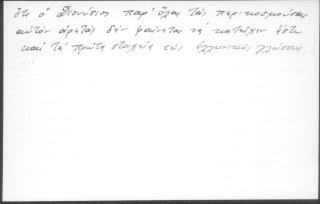 ὅτι ὁ Διονύσιος παρ' ὅλας τὰς περικοσμούσας
αὐτὸν ἀρετὰς δὲν φαίνεται νὰ κατεῖχεν ἔστω
καὶ τὰ πρῶτα στοιχεῖα τῆς ἑλληνικῆς γλώσσης
...